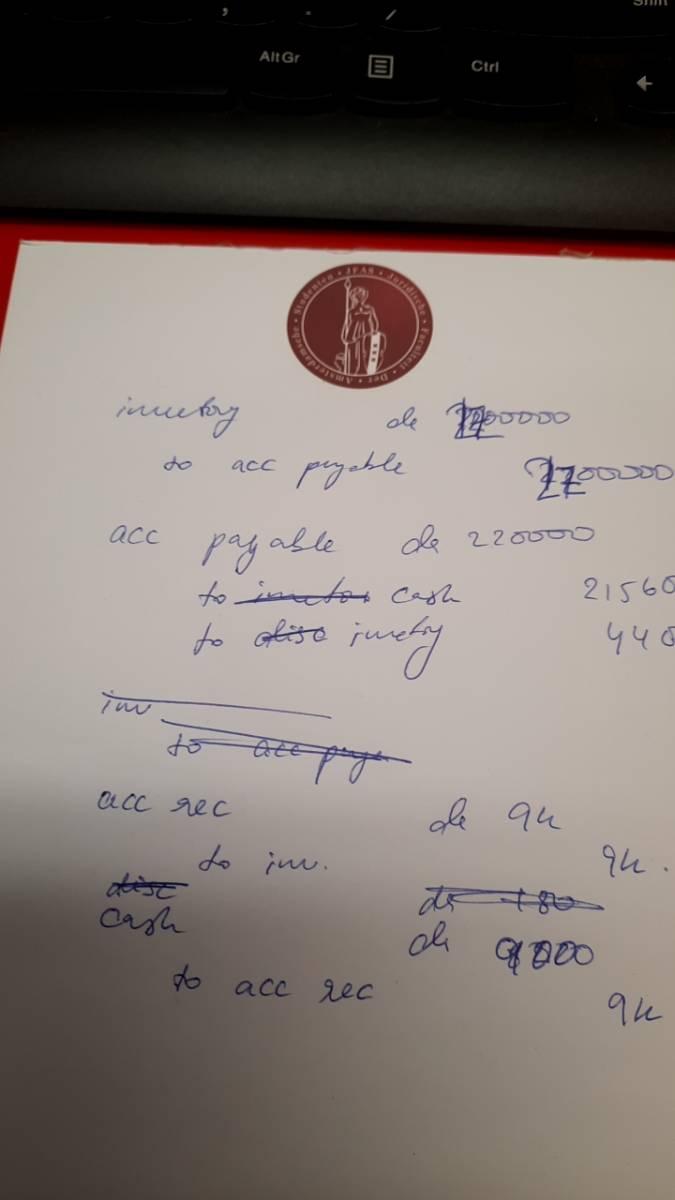 Shift
, . /
Alt Gr
Ctrl
Amsterdamsche • Studenten • JFAS • Juridische • Faculteit • Der •
inventory de
to acc payable
acc payable de 220000
to cash 21560
to inventory 440
inv
to acc paya
acc rec de 9k
to inv. 9k.
disc de 180
cash de
to acc rec 9k